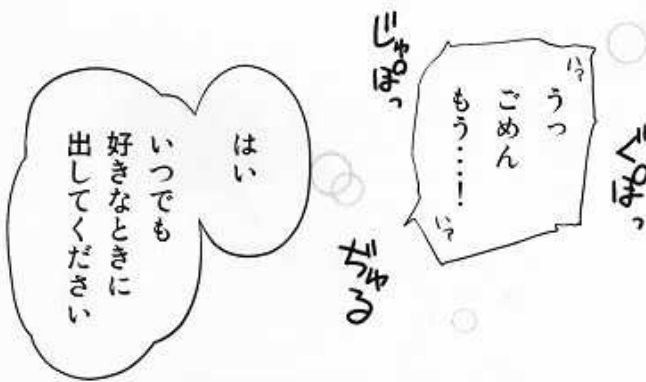 ぐぽっ
うっ
ごめん
もう…！
じゅぽっ
ぢゅる
はい
いつでも
好きなときに
出してください